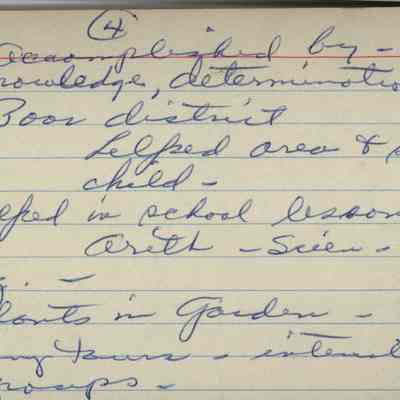 ④
Accomplished by -
nowledge, determinatio
Boor district
Helped area &
child -
lped in school lesson
Arith - Scien -
g. -
lants in Garden -
ny tours - interest
roups -